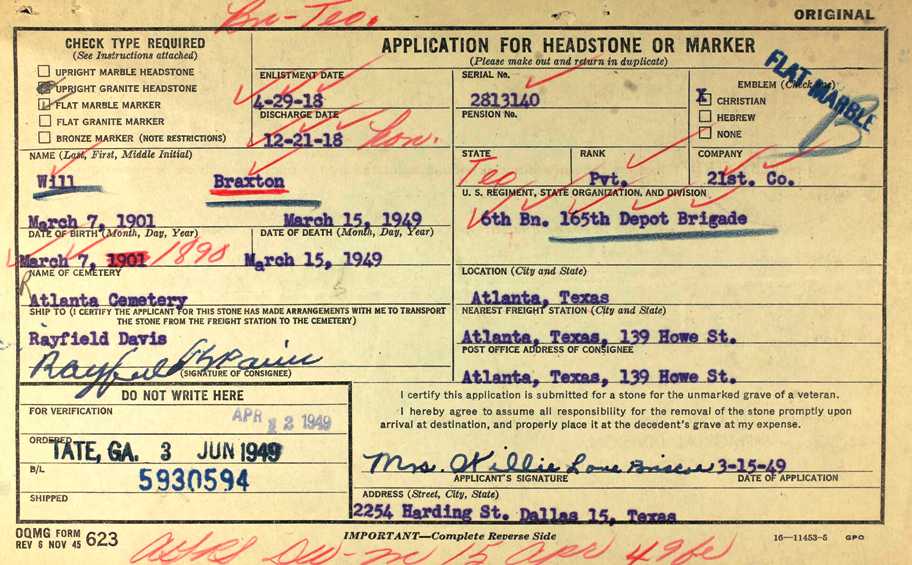 Bn-Tex.
ORIGINAL
CHECK TYPE REQUIRED
(See Instructions attached)
UPRIGHT MARBLE HEADSTONE
UPRIGHT GRANITE HEADSTONE
FLAT MARBLE MARKER
FLAT GRANITE MARKER
BRONZE MARKER (NOTE RESTRICTIONS)
APPLICATION FOR HEADSTONE OR MARKER
(Please make out and return in duplicate)
ENLISTMENT DATE
4-29-18
DISCHARGE DATE
12-21-18 Hon.
SERIAL No.
2813140
PENSION No.
EMBLEM (Check one)
X CHRISTIAN
HEBREW
NONE
FLAT MARBLE
B
NAME (Last, First, Middle Initial)
Will Braxton
STATE
Tex
RANK
Pvt.
COMPANY
21st. Co.
U. S. REGIMENT, STATE ORGANIZATION, AND DIVISION
6th Bn. 165th Depot Brigade
March 7, 1901 March 15, 1949
DATE OF BIRTH (Month, Day, Year) DATE OF DEATH (Month, Day, Year)
March 7, 1901 1890 March 15, 1949
NAME OF CEMETERY
Atlanta Cemetery
LOCATION (City and State)
Atlanta, Texas
SHIP TO (I CERTIFY THE APPLICANT FOR THIS STONE HAS MADE ARRANGEMENTS WITH ME TO TRANSPORT
THE STONE FROM THE FREIGHT STATION TO THE CEMETERY)
Rayfield Davis
(SIGNATURE OF CONSIGNEE)
NEAREST FREIGHT STATION (City and State)
Atlanta, Texas, 139 Howe St.
POST OFFICE ADDRESS OF CONSIGNEE
Atlanta, Texas, 139 Howe St.
DO NOT WRITE HERE
FOR VERIFICATION
APR 22 1949
ORDERED
TATE, GA. 3 JUN 1949
B/L
5930594
SHIPPED
I certify this application is submitted for a stone for the unmarked grave of a veteran.
I hereby agree to assume all responsibility for the removal of the stone promptly upon
arrival at destination, and properly place it at the decedent's grave at my expense.
Mrs. Willie Love Briscoe 3-15-49
APPLICANT'S SIGNATURE DATE OF APPLICATION
ADDRESS (Street, City, State)
2254 Harding St. Dallas 15, Texas
OQMG FORM
REV 6 NOV 45 623
IMPORTANT—Complete Reverse Side
16—11453-5 GPO
15 apr 49